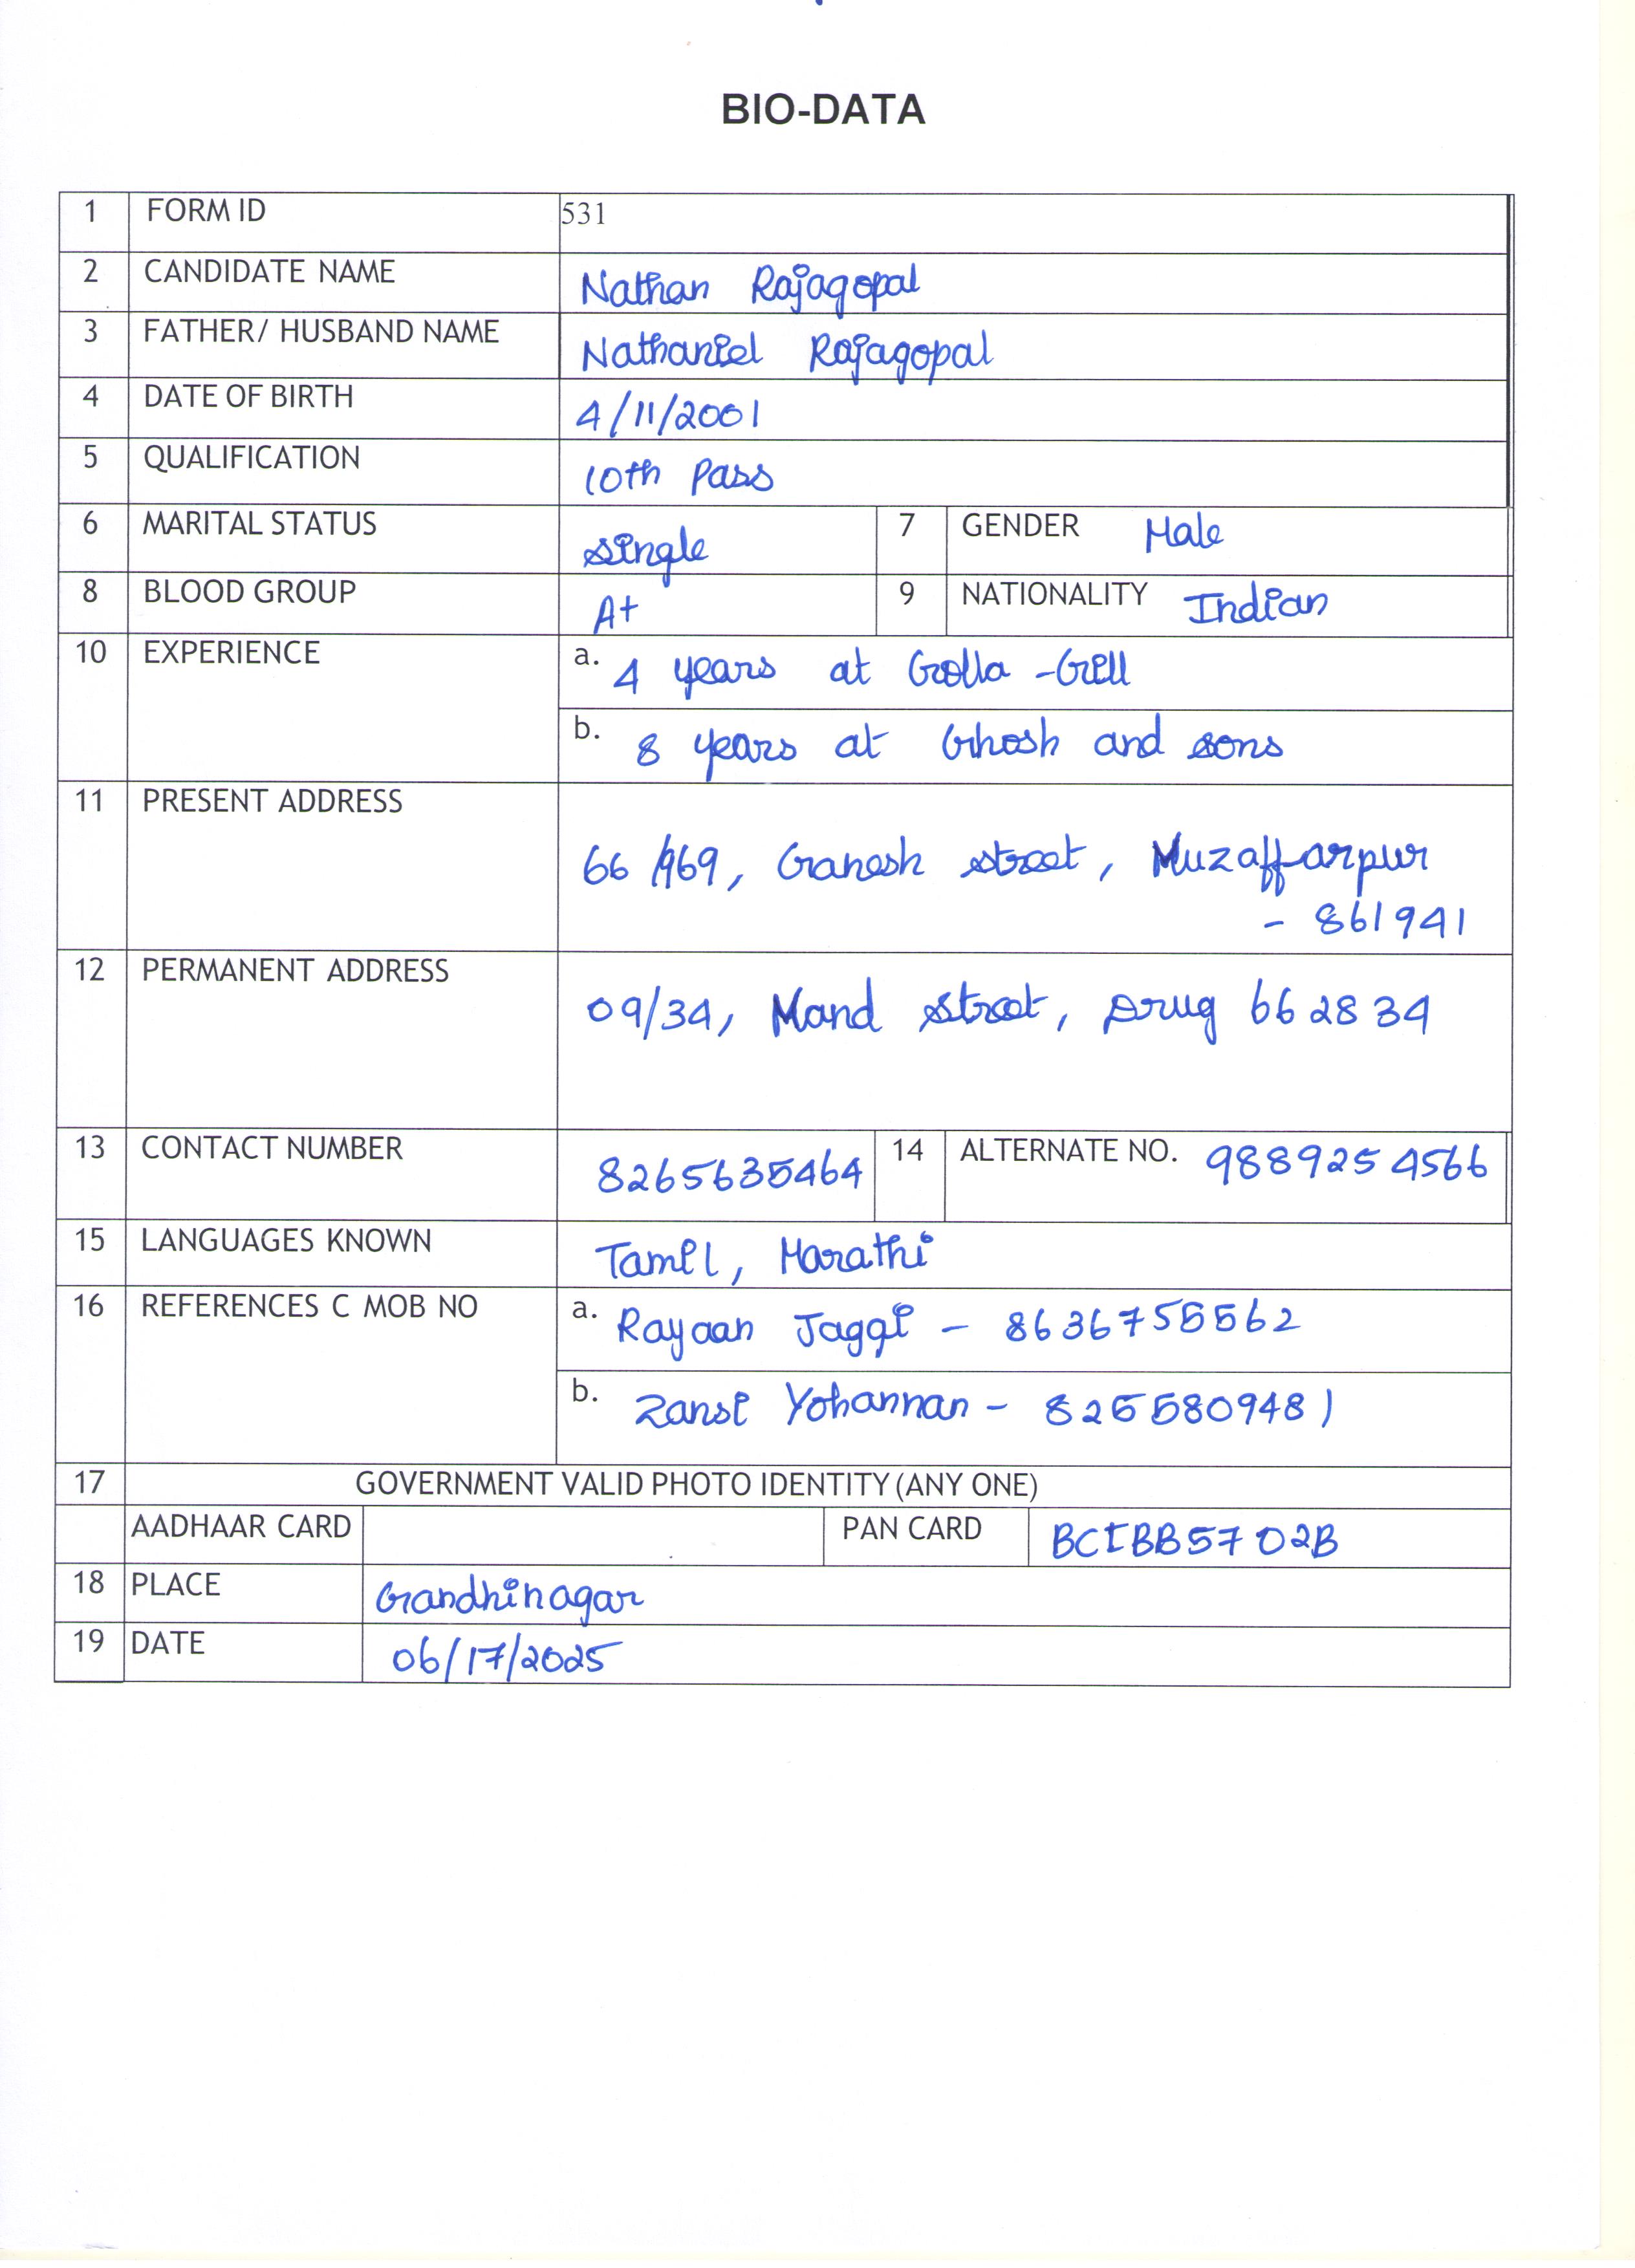 BIO-DATA
1 FORM ID 531
2 CANDIDATE NAME Nathan Rajagopal
3 FATHER/ HUSBAND NAME Nathaniel Rajagopal
4 DATE OF BIRTH 4/11/2001
5 QUALIFICATION 10th Pass
6 MARITAL STATUS single 7 GENDER Male
8 BLOOD GROUP A+ 9 NATIONALITY Indian
10 EXPERIENCE a. 4 years at Golla -Gill
b. 8 years at Ghosh and sons
11 PRESENT ADDRESS
66/969, Ganesh street, Muzaffarpur
- 861941
12 PERMANENT ADDRESS
09/34, Mand street, Durg 662834
13 CONTACT NUMBER 8265635464 14 ALTERNATE NO. 9889254566
15 LANGUAGES KNOWN Tamil, Marathi
16 REFERENCES C MOB NO a. Rayaan Jaggi - 8636755562
b. Zansi Yohannan - 8255809481
17 GOVERNMENT VALID PHOTO IDENTITY (ANY ONE)
AADHAAR CARD PAN CARD BCIBB5702B
18 PLACE Gandhinagar
19 DATE 06/17/2025